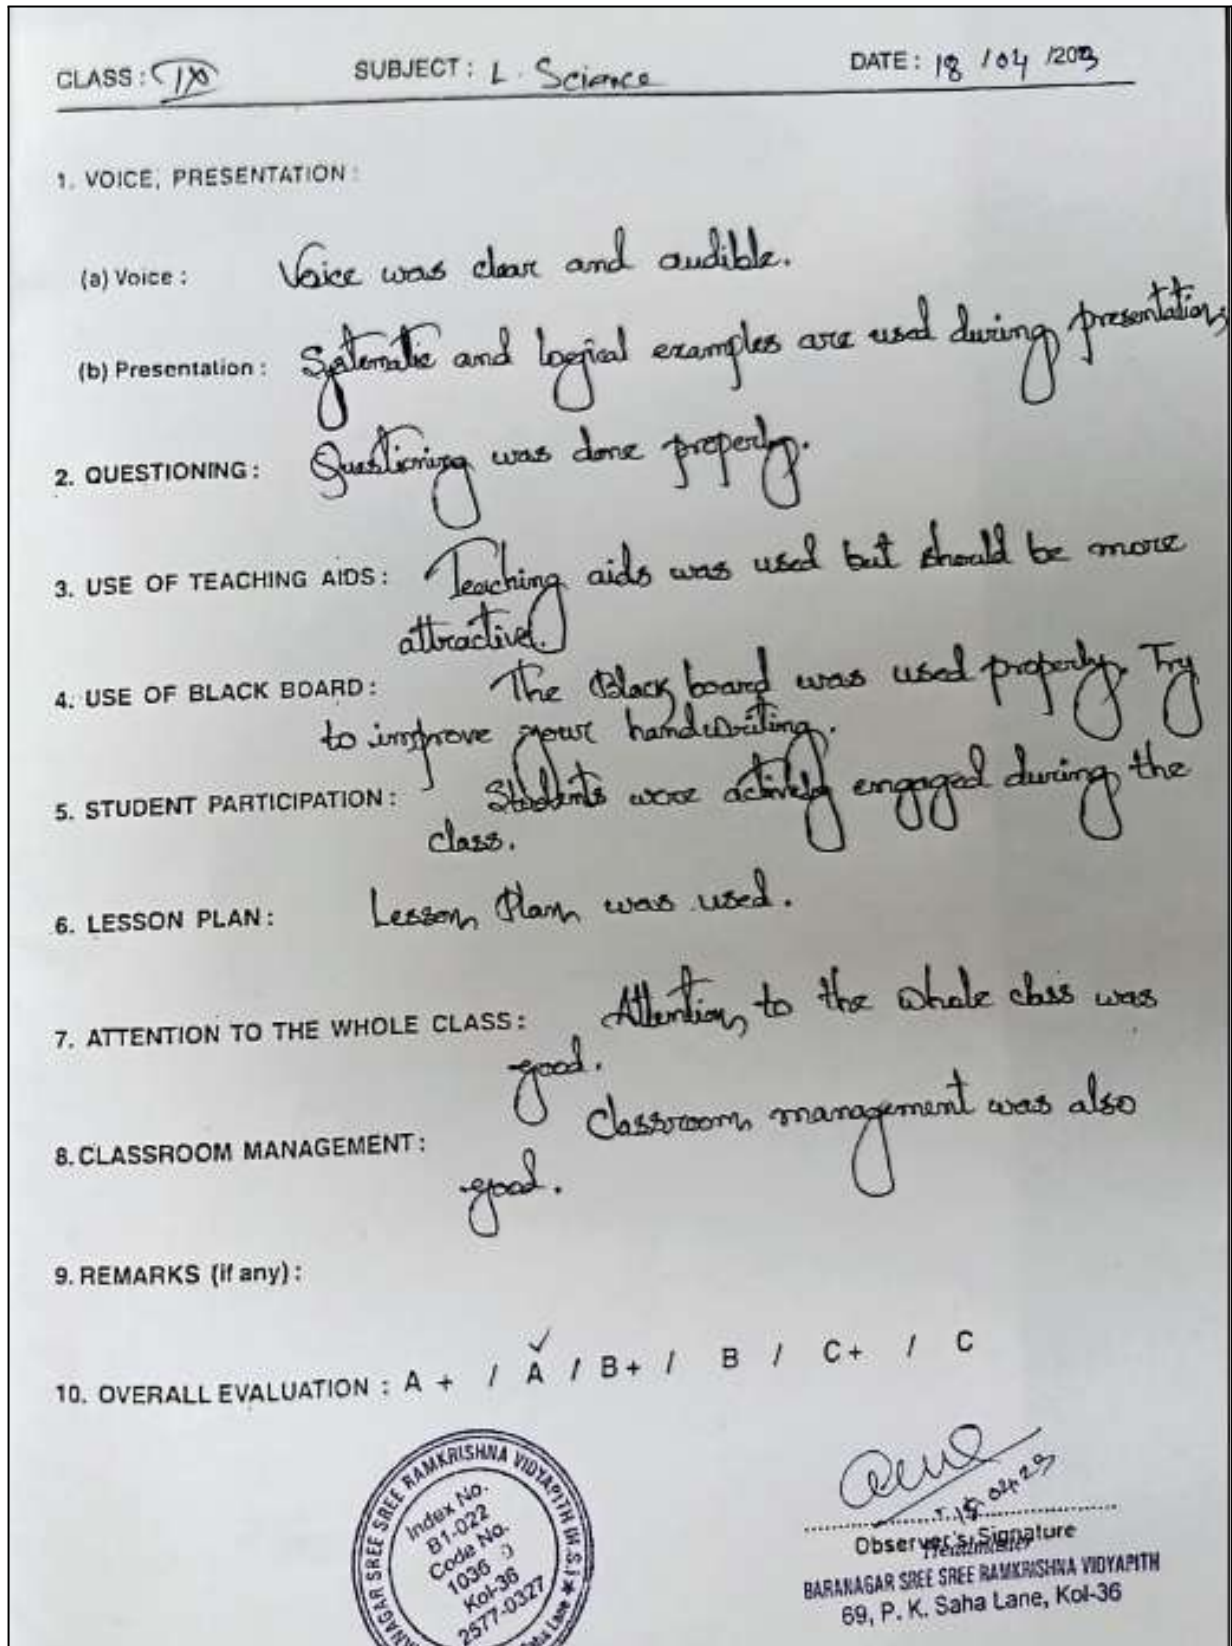 CLASS: IX SUBJECT: L. Science DATE: 18 /04 /2023
1. VOICE, PRESENTATION:
(a) Voice: Voice was clear and audible.
(b) Presentation: Systematic and logical examples are used during presentation.
2. QUESTIONING: Questioning was done properly.
3. USE OF TEACHING AIDS: Teaching aids was used but should be more
attractive.
4. USE OF BLACK BOARD: The Black board was used properly. Try
to improve your handwriting.
5. STUDENT PARTICIPATION: Students were actively engaged during the
class.
6. LESSON PLAN: Lesson Plan was used.
7. ATTENTION TO THE WHOLE CLASS: Attention to the whole class was
good.
8. CLASSROOM MANAGEMENT: Classroom management was also
good.
9. REMARKS (if any):
10. OVERALL EVALUATION : A + / A / B + / B / C + / C
NAGAR SREE SREE RAMKRISHNA VIDYAPITH (H.S.) ★ Saha Lane
Index No.
B1-022
Code No.
1036
Kol-36
2577-0327
04.23
Observer's Signature
Headmaster
BARANAGAR SREE SREE RAMKRISHNA VIDYAPITH
69, P. K. Saha Lane, Kol-36